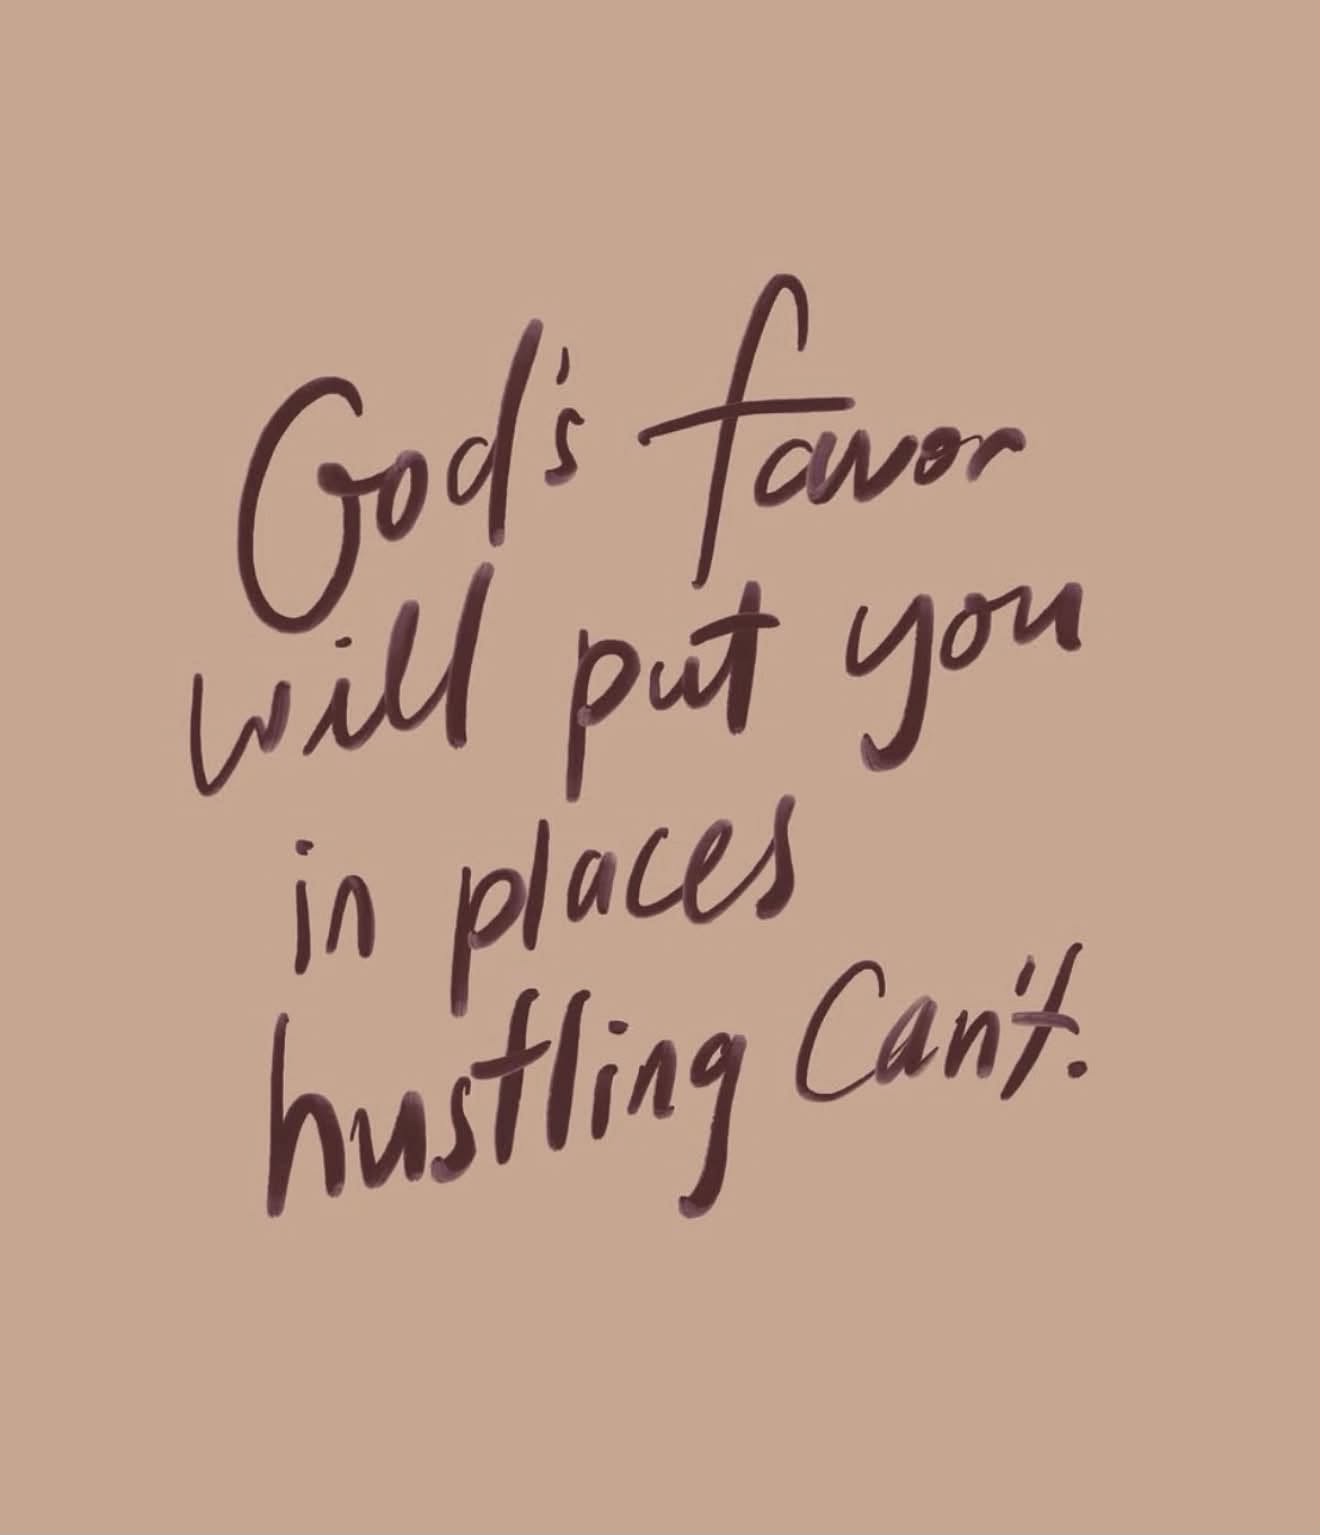 God's favor
will put you
in places
hustling Can't.